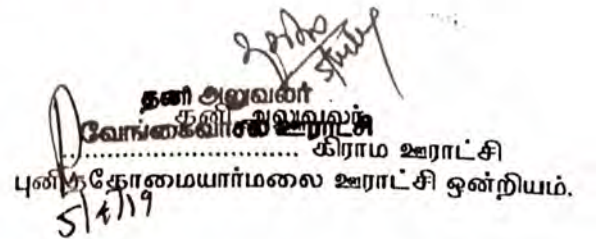 தனி அலுவலர்
தனி அலுவலர்
வேங்கைவாசல் ஊராட்சி
........................... கிராம ஊராட்சி
புனிததோமையார்மலை ஊராட்சி ஒன்றியம்.